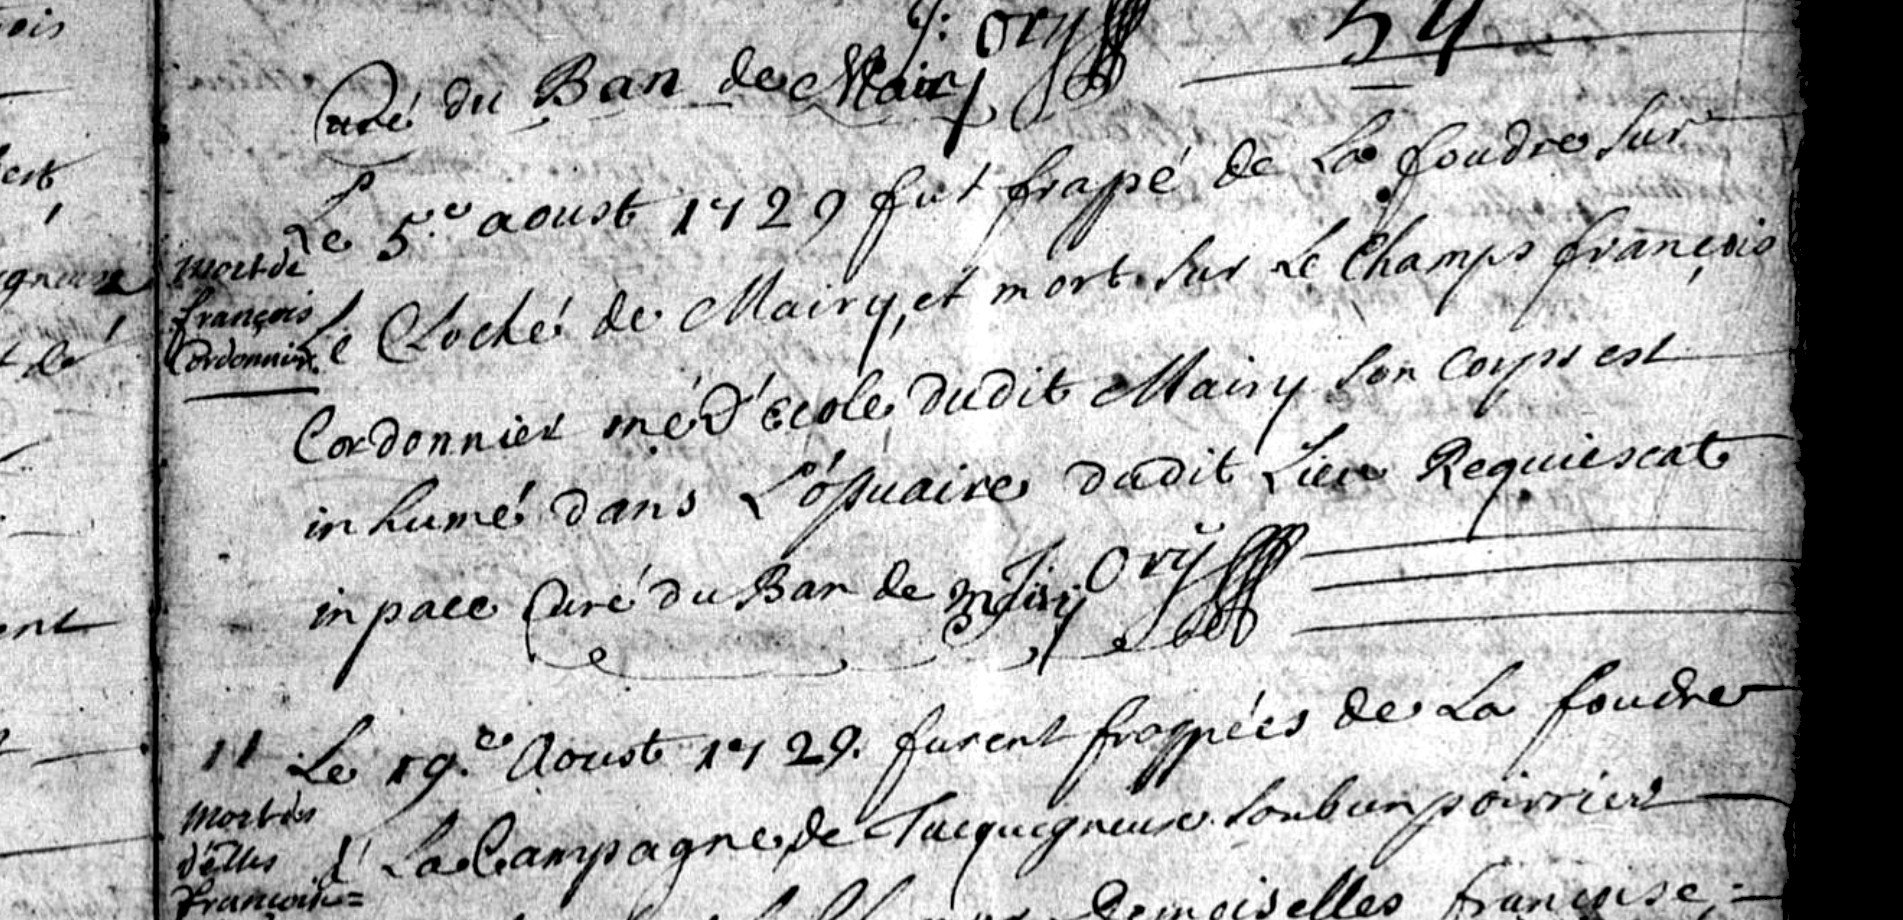 J: Ory
54
Curé du Ban de Mairy
Le 5.e aoust 1729 fut frapé de La foudre sur
mort de
françois
Cordonnier
Le Cloché de Mairy, et mort sur Le Champs françois
Cordonnier mé d'école dudit Mairy son corps est
inhumé dans L'ossuaire dudit Lieu Requiescat
in pace Curé du Ban de Mairy J: Ory
11 Le 19.e Aoust 1729. furent frappées de La foudre
mort des
d'elles
françoise
à La Campagne de Tucquegneux soub un poirrier
Demoiselles françoise,
ois
gneux
t de
ent